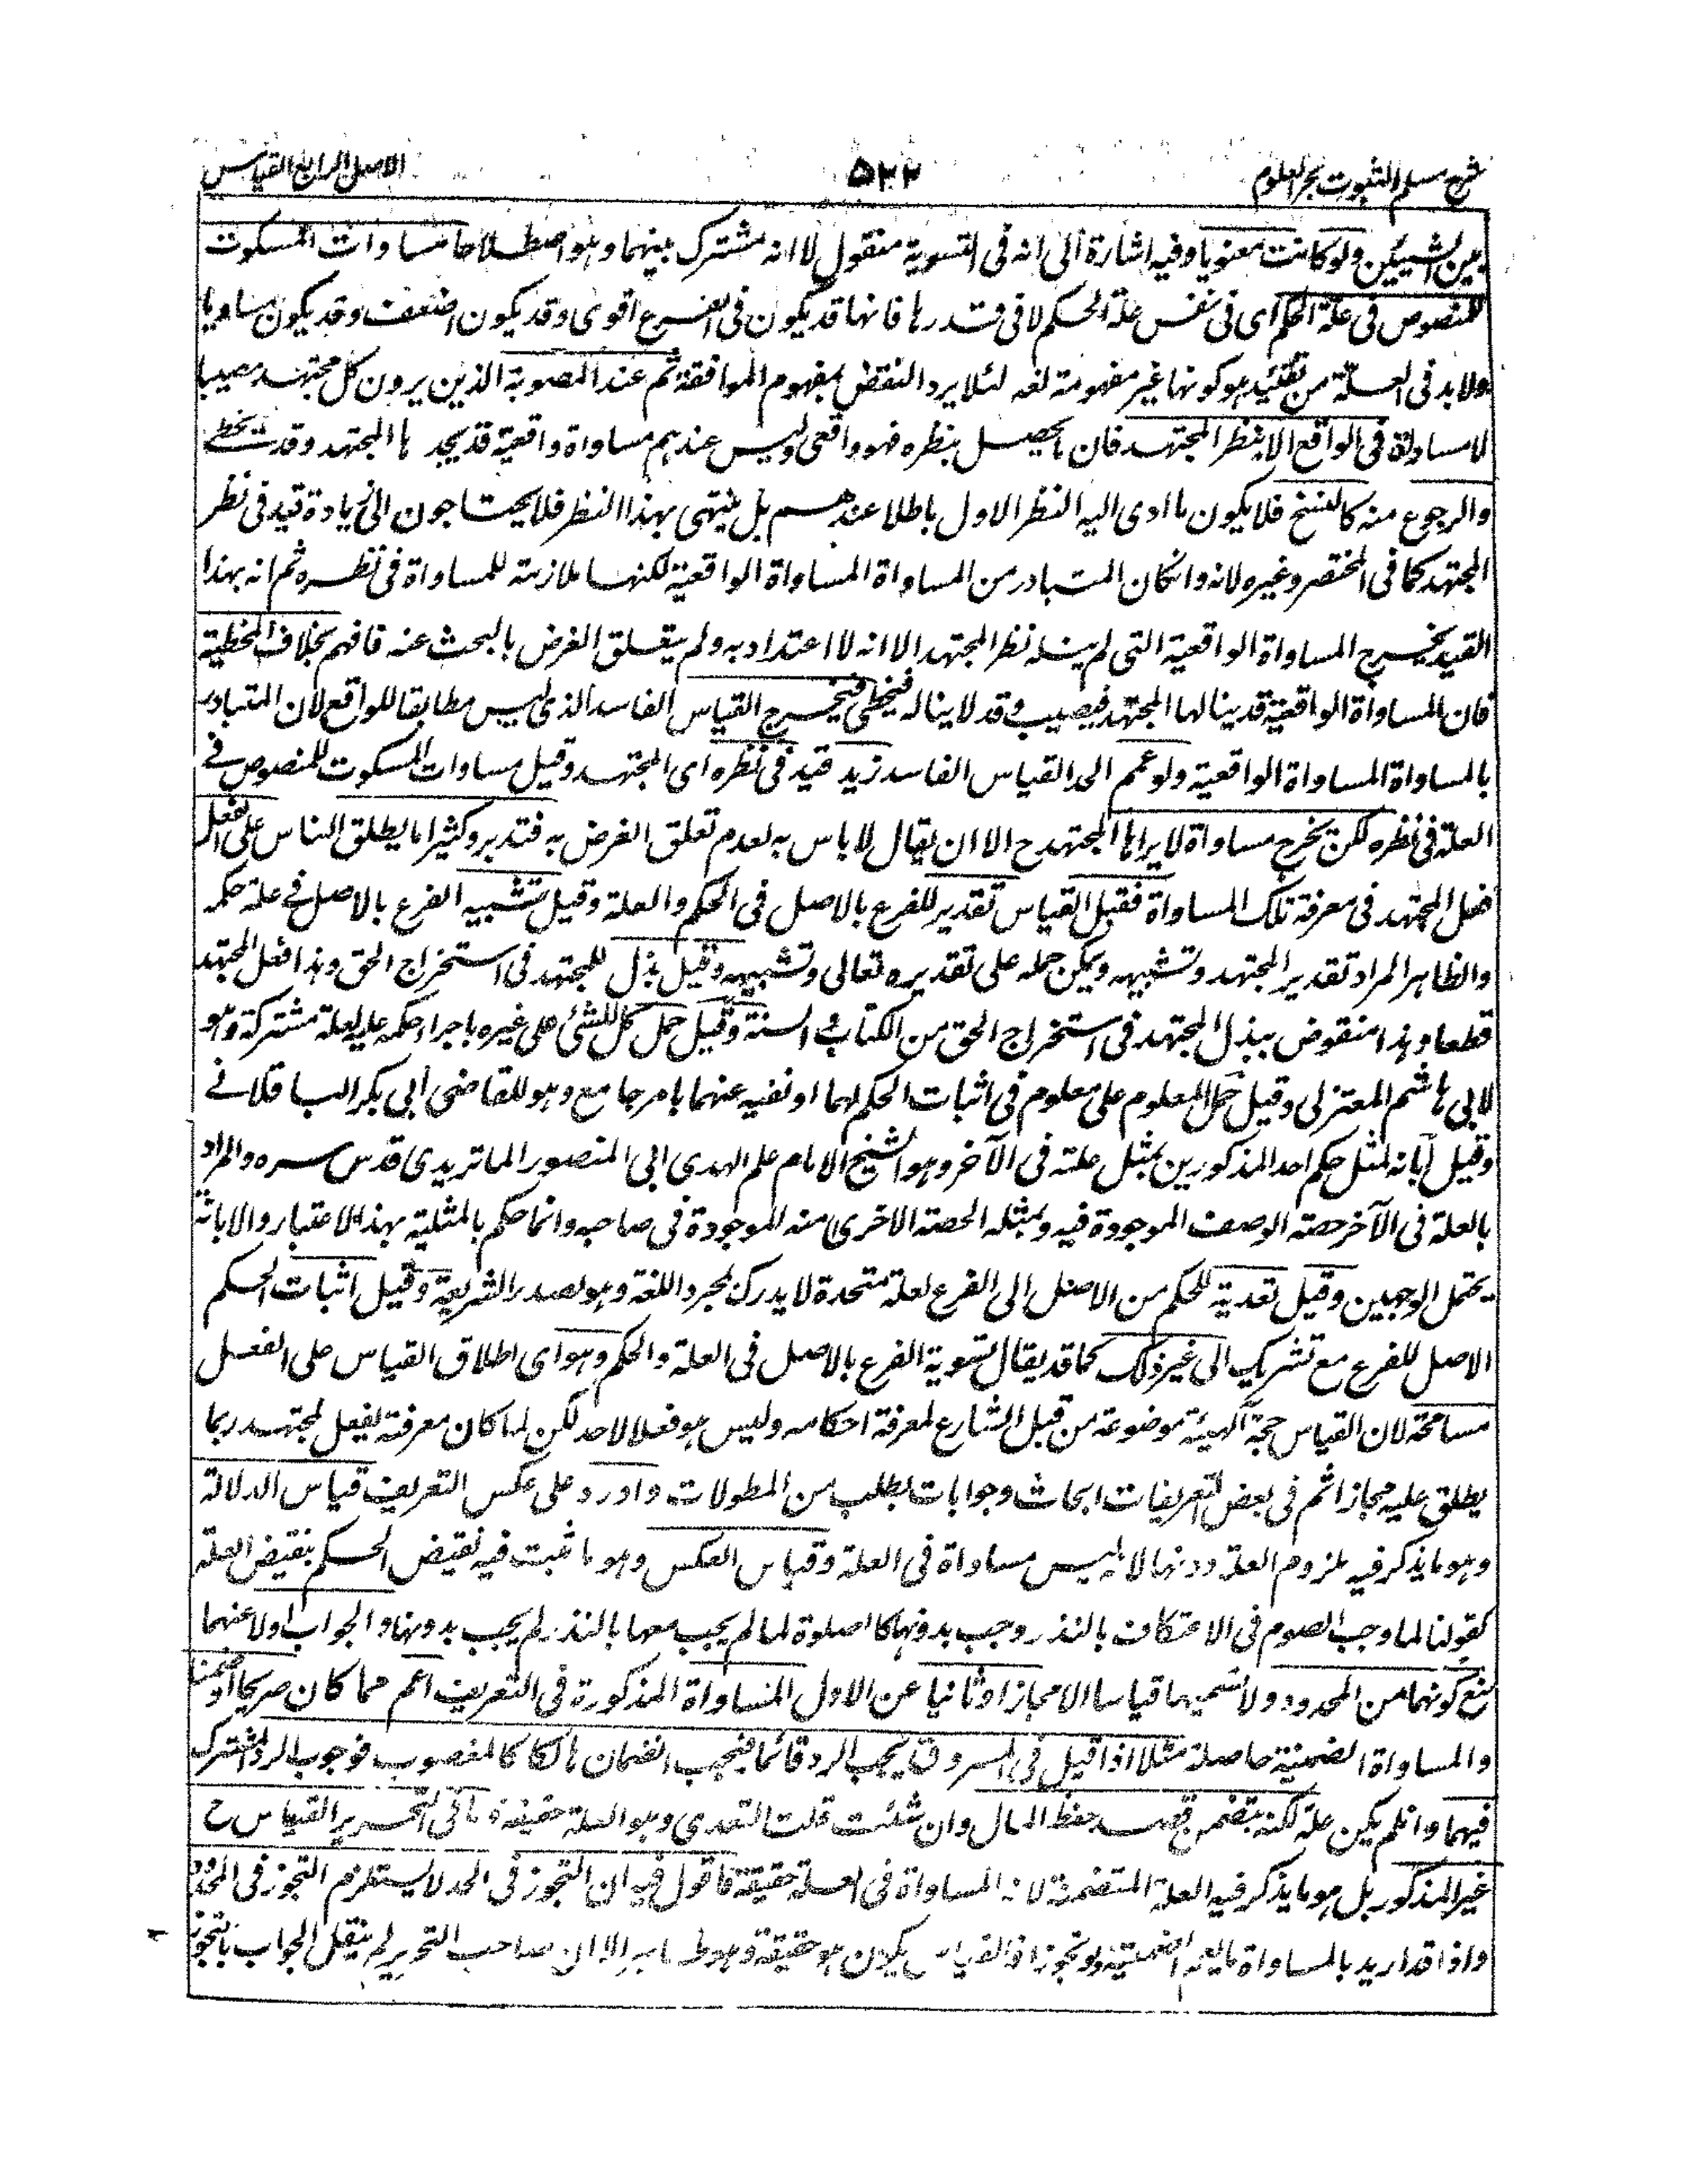 شرح مسلم الثبوت بحر العلوم
٥٢٢
الاصل الرابع القياس
بين الشيئين ولو كانت معنويا وفيه اشارة الى انه فى التسوية منقول لا انه مشترك بينهما وهو اصطلاحا مساوات المسكوت
للمنصوص فى علة الحكم اى فى نفس علة الحكم لا فى قدرها فانها قد يكون فى الفرع اقوى وقد يكون اضعف وقد يكون مساويا
ولا بد فى العلة من تقئيد هو كونها غير مفهومة لغه لئلا يرد النقض بمفهوم الموافقة ثم عند المصوبة الذين يرون كل مجتهد مصيبا
لا مساواة فى الواقع الا بنظر المجتهد فان ما يحصل بنظره فهو واقعى وليس عندهم مساواة واقعية قد يجدها المجتهد وقد تخطے
والرجوع منه كالنسخ فلا يكون ما ادى اليه النظر الاول باطلا عندهم بل ينتهى بهذا النظر فلا يحتاجون الى زيادة قيد فى نظر
المجتهد كما فى المختصر وغيره لانه وان كان المتبادر من المساواة المساواة الواقعية لكنها ملازمة للمساواة فى نظره ثم انه بهذا
القيد يخرج المساواة الواقعية التى لم ينله نظر المجتهد الا انه لا اعتداد به ولم يتعلق الغرض بالبحث عنه فافهم بخلاف المخطية
فان المساواة الواقعية قد ينالها المجتهد فيصيب وقد لا يناله فيخطى فيخرج القياس الفاسد الذى ليس مطابقا للواقع لان المتبادر
بالمساواة المساواة الواقعية ولو عمم الحد القياس الفاسد زيد قيد فى نظره اى المجتهد وقيل مساوات المسكوت للمنصوص فے
العلة فى نظره لكن يخرج مساواة لا يراها المجتهد ح الا ان يقال لا باس به لعدم تعلق الغرض به فتدبر وكثيرا ما يطلق الناس على الفعل
فعل المجتهد فى معرفة تلك المساواة فقيل القياس تقدير للفرع بالاصل فى الحكم والعلة وقيل تشبيه الفرع بالاصل فے علة حكمه
والظاهر المراد تقدير المجتهد وتشبيهه ويمكن حمله على تقديره تعالى وتشبيهه وقيل بذل للمجتهد فى استخراج الحق وهذا فعل المجتهد
قطعا وهذا منقوض ببذل المجتهد فى استخراج الحق من الكتاب والسنة وقيل حمل كل للشئ على غيره باجراء حكمه عليه لعلة مشتركة وهو
لابى هاشم المعتزلى وقيل حمل المعلوم على معلوم فى اثبات الحكم لهما او نفيه عنهما بامر جامع وهو للقاضى ابى بكر الباقلانے
وقيل ابانة مثل حكم احد المذكورين بمثل علته فى الآخر وهو الشيخ الامام علم الهدى ابى المنصور الماتريدى قدس سره والمراد
بالعلة فى الآخر حصة الوصف الموجودة فيه وبمثله الحصة الاخرى منه الموجودة فى صاحبه وانما حكم بالمثلية بهذا الاعتبار والابانة
يحتمل الوجهين وقيل تعدية للحكم من الاصل الى الفرع لعلة متحدة لا يدرك بمجرد اللغة وهو لصدر الشريعة وقيل اثبات الحكم
الاصل للفرع مع تشريك الى غير ذلك كما قد يقال تسوية الفرع بالاصل فى العلة والحكم وهو اى اطلاق القياس على الفعل
مسامحة لان القياس حجة آلهيئة موضوعة من قبل الشارع لمعرفة احكامه وليس هو فعلا لاحد لكن لما كان معرفة بفعل المجتهد ربما
يطلق عليه مجازا ثم فى بعض التعريفات ابحاث وجوابات يطلب من المطولات واورد على عكس التعريف قياس الدلالة
وهو ما يذكر فيه ملزوم العلة دونها لانه ليس مساواة فى العلة وقياس العكس وهو ما ثبت فيه نقيض الحكم بنقيض العلة
كقولنا لما وجب الصوم فى الاعتكاف بالنذر وجب بدونها كالصلوة لما لم يجب معها بالنذر لم يجب بدونها والجواب اولا عنهما
منع كونهما من المحدود ولا نسميهما قياسا الا مجازا وثانيا عن الاول المساواة المذكورة فى التعريف اعم مما كان صريحا او ضمنا
والمساواة الضمنية حاصلة مثلا اذا قيل فى المسروق يجب الرد قائما فيجب الضمان هالكا كالمغصوب فوجوب الرد المشترك
فيهما وان لم يكن علة لكنه بتضمه قصد حفظ المال وان شئت قلت التعدى وهو العلة حقيقة وما فى التحرير القياس ح
غير المذكور بل هو ما يذكر فيه العلة المتضمنة لانه المساواة فى العلة حقيقة فاقول فيه ان التجوز فى الحد لا يستلزم التجوز فى المحدود
واذا قد اريد بالمساواة ما يعم الضمنية ولو تجوزا فالقياس يكون هو حقيقة وهو ظاهر الا ان صاحب التحرير لم ينقل الجواب بالتجوز